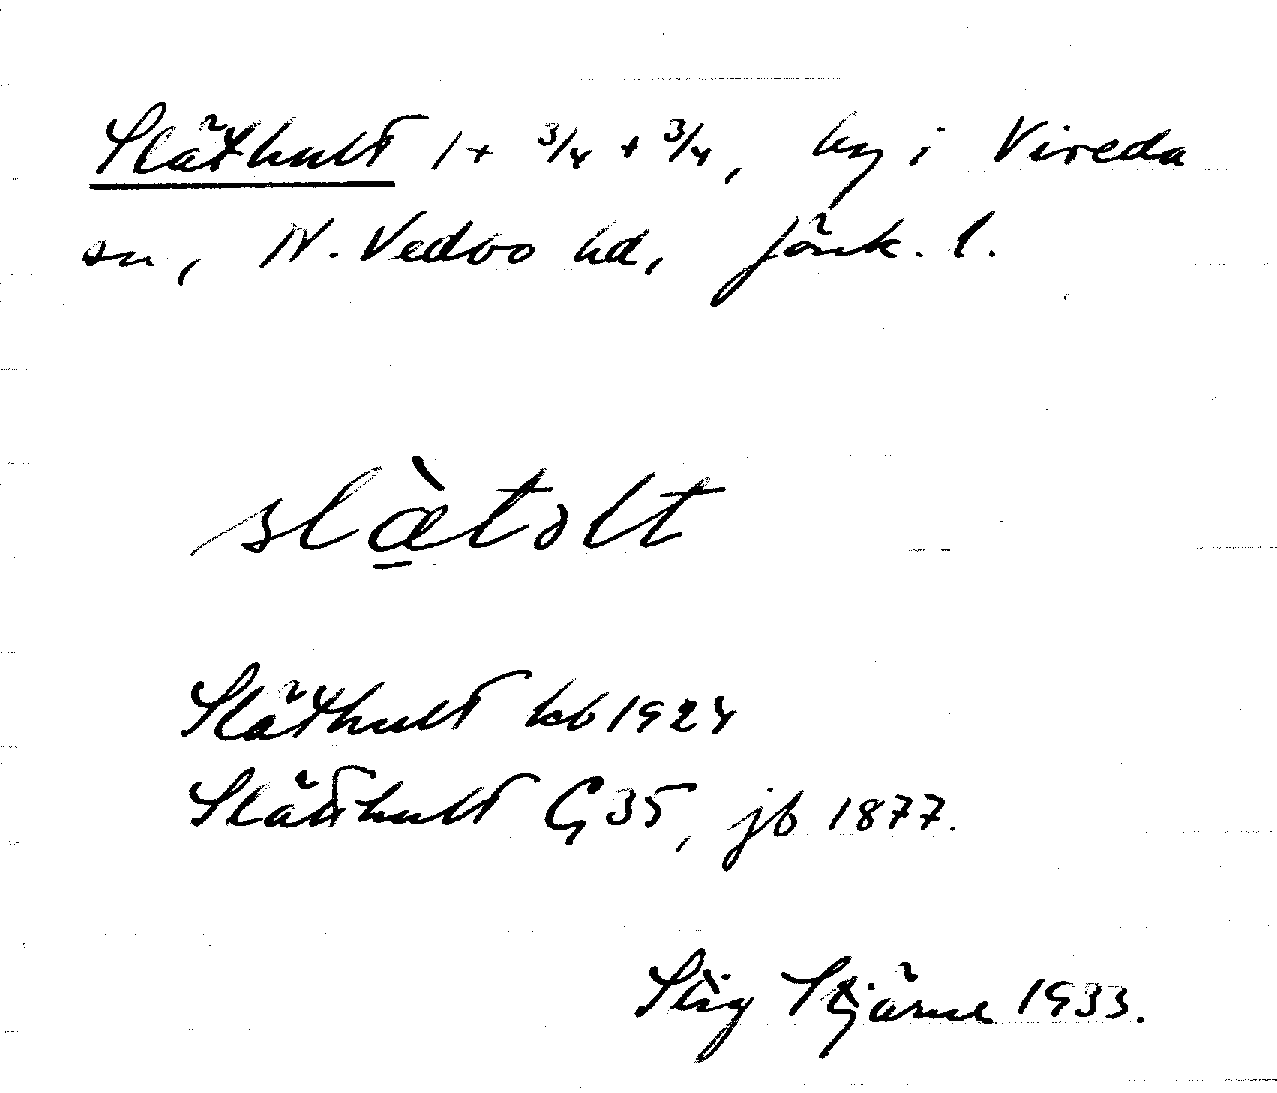 Släthult 1 + 3/4 + 3/4, by i Vireda
sn, N. Vedbo hd, Jönk. l.
slæ̠̀tɔlt
Släthult kb 1924
Slätthult G 35, jb 1877.
Stig Stjärne 1933.